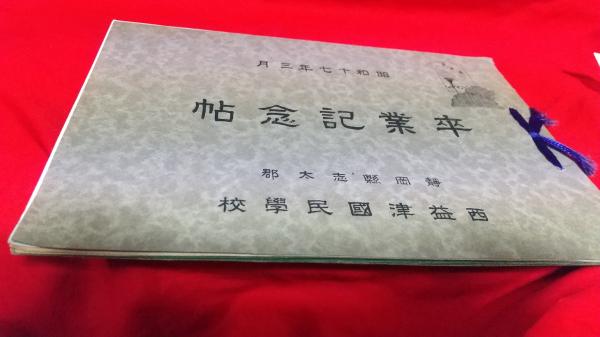 昭和十七年三月
卒業記念帖
靜岡縣志太郡
西益津國民學校